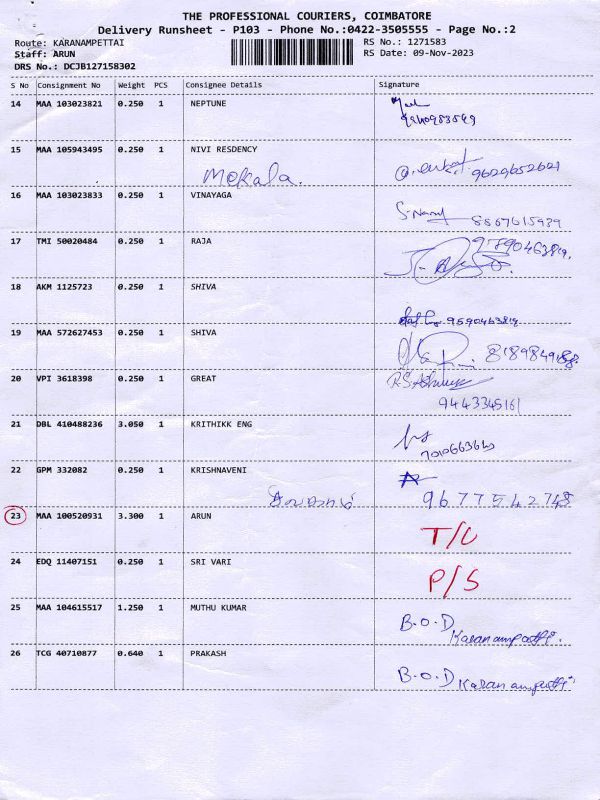 THE PROFESSIONAL COURIERS, COIMBATORE
Delivery Runsheet - P103 - Phone No.:0422-3505555 - Page No.:2
Route: KARANAMPETTAI RS No.: 1271583
Staff: ARUN RS Date: 09-Nov-2023
DRS No.: DCJB127158302
S No Consignment No Weight PCS Consignee Details Signature
14 MAA 103023821 0.250 1 NEPTUNE
15 MAA 105943495 0.250 1 NIVI RESDENCY
Mekala. 9629652621
16 MAA 103023833 0.250 1 VINAYAGA
8867615939
17 TMI 50020484 0.250 1 RAJA
18 AKM 1125723 0.250 1 SHIVA
9590463819
19 MAA 572627453 0.250 1 SHIVA
20 VPI 3618398 0.250 1 GREAT
9443345161
21 DBL 410488236 3.050 1 KRITHIKK ENG
22 GPM 332082 0.250 1 KRISHNAVENI
9677542748
23 MAA 100520931 3.300 1 ARUN
T/C
24 EDQ 11407151 0.250 1 SRI VARI
P/S
25 MAA 104615517 1.250 1 MUTHU KUMAR
B.O.D
26 TCG 40710877 0.640 1 PRAKASH
B.O.D